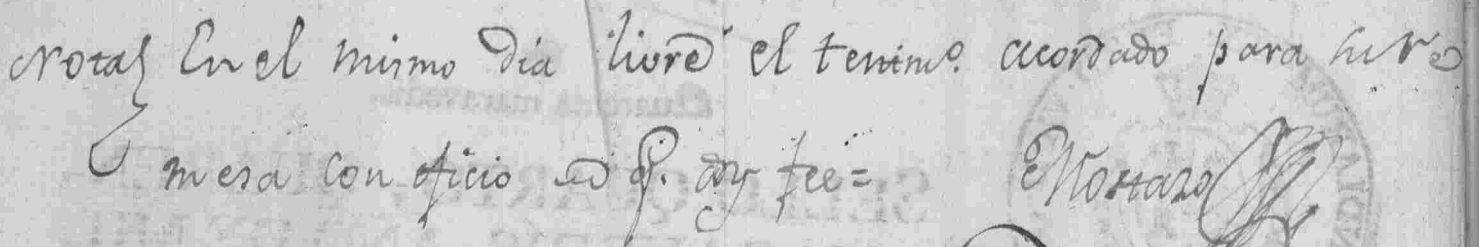 Nota En el mismo dia libre el testimo. acordado para su re
mesa con oficio de q. doy fee=